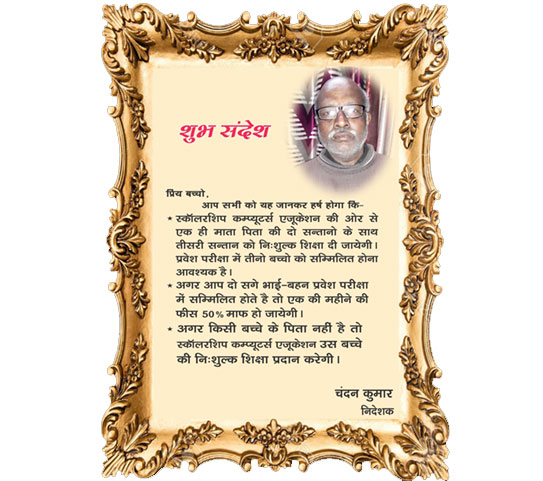 शुभ संदेश
प्रिय बच्चो,
आप सभी को यह जानकर हर्ष होगा कि-
* स्कॉलरशिप कम्प्यूटर्स एजूकेशन की ओर से
एक ही माता पिता की दो सन्तानो के साथ
तीसरी सन्तान को निःशुल्क शिक्षा दी जायेगी।
प्रवेश परीक्षा में तीनो बच्चो को सम्मिलित होना
आवश्यक है।
* अगर आप दो सगे भाई-बहन प्रवेश परीक्षा
में सम्मिलित होते है तो एक की महीने की
फीस 50% माफ हो जायेगी।
* अगर किसी बच्चे के पिता नहीं है तो
स्कॉलरशिप कम्प्यूटर्स एजूकेशन उस बच्चे
की निःशुल्क शिक्षा प्रदान करेगी।
चंदन कुमार
निदेशक